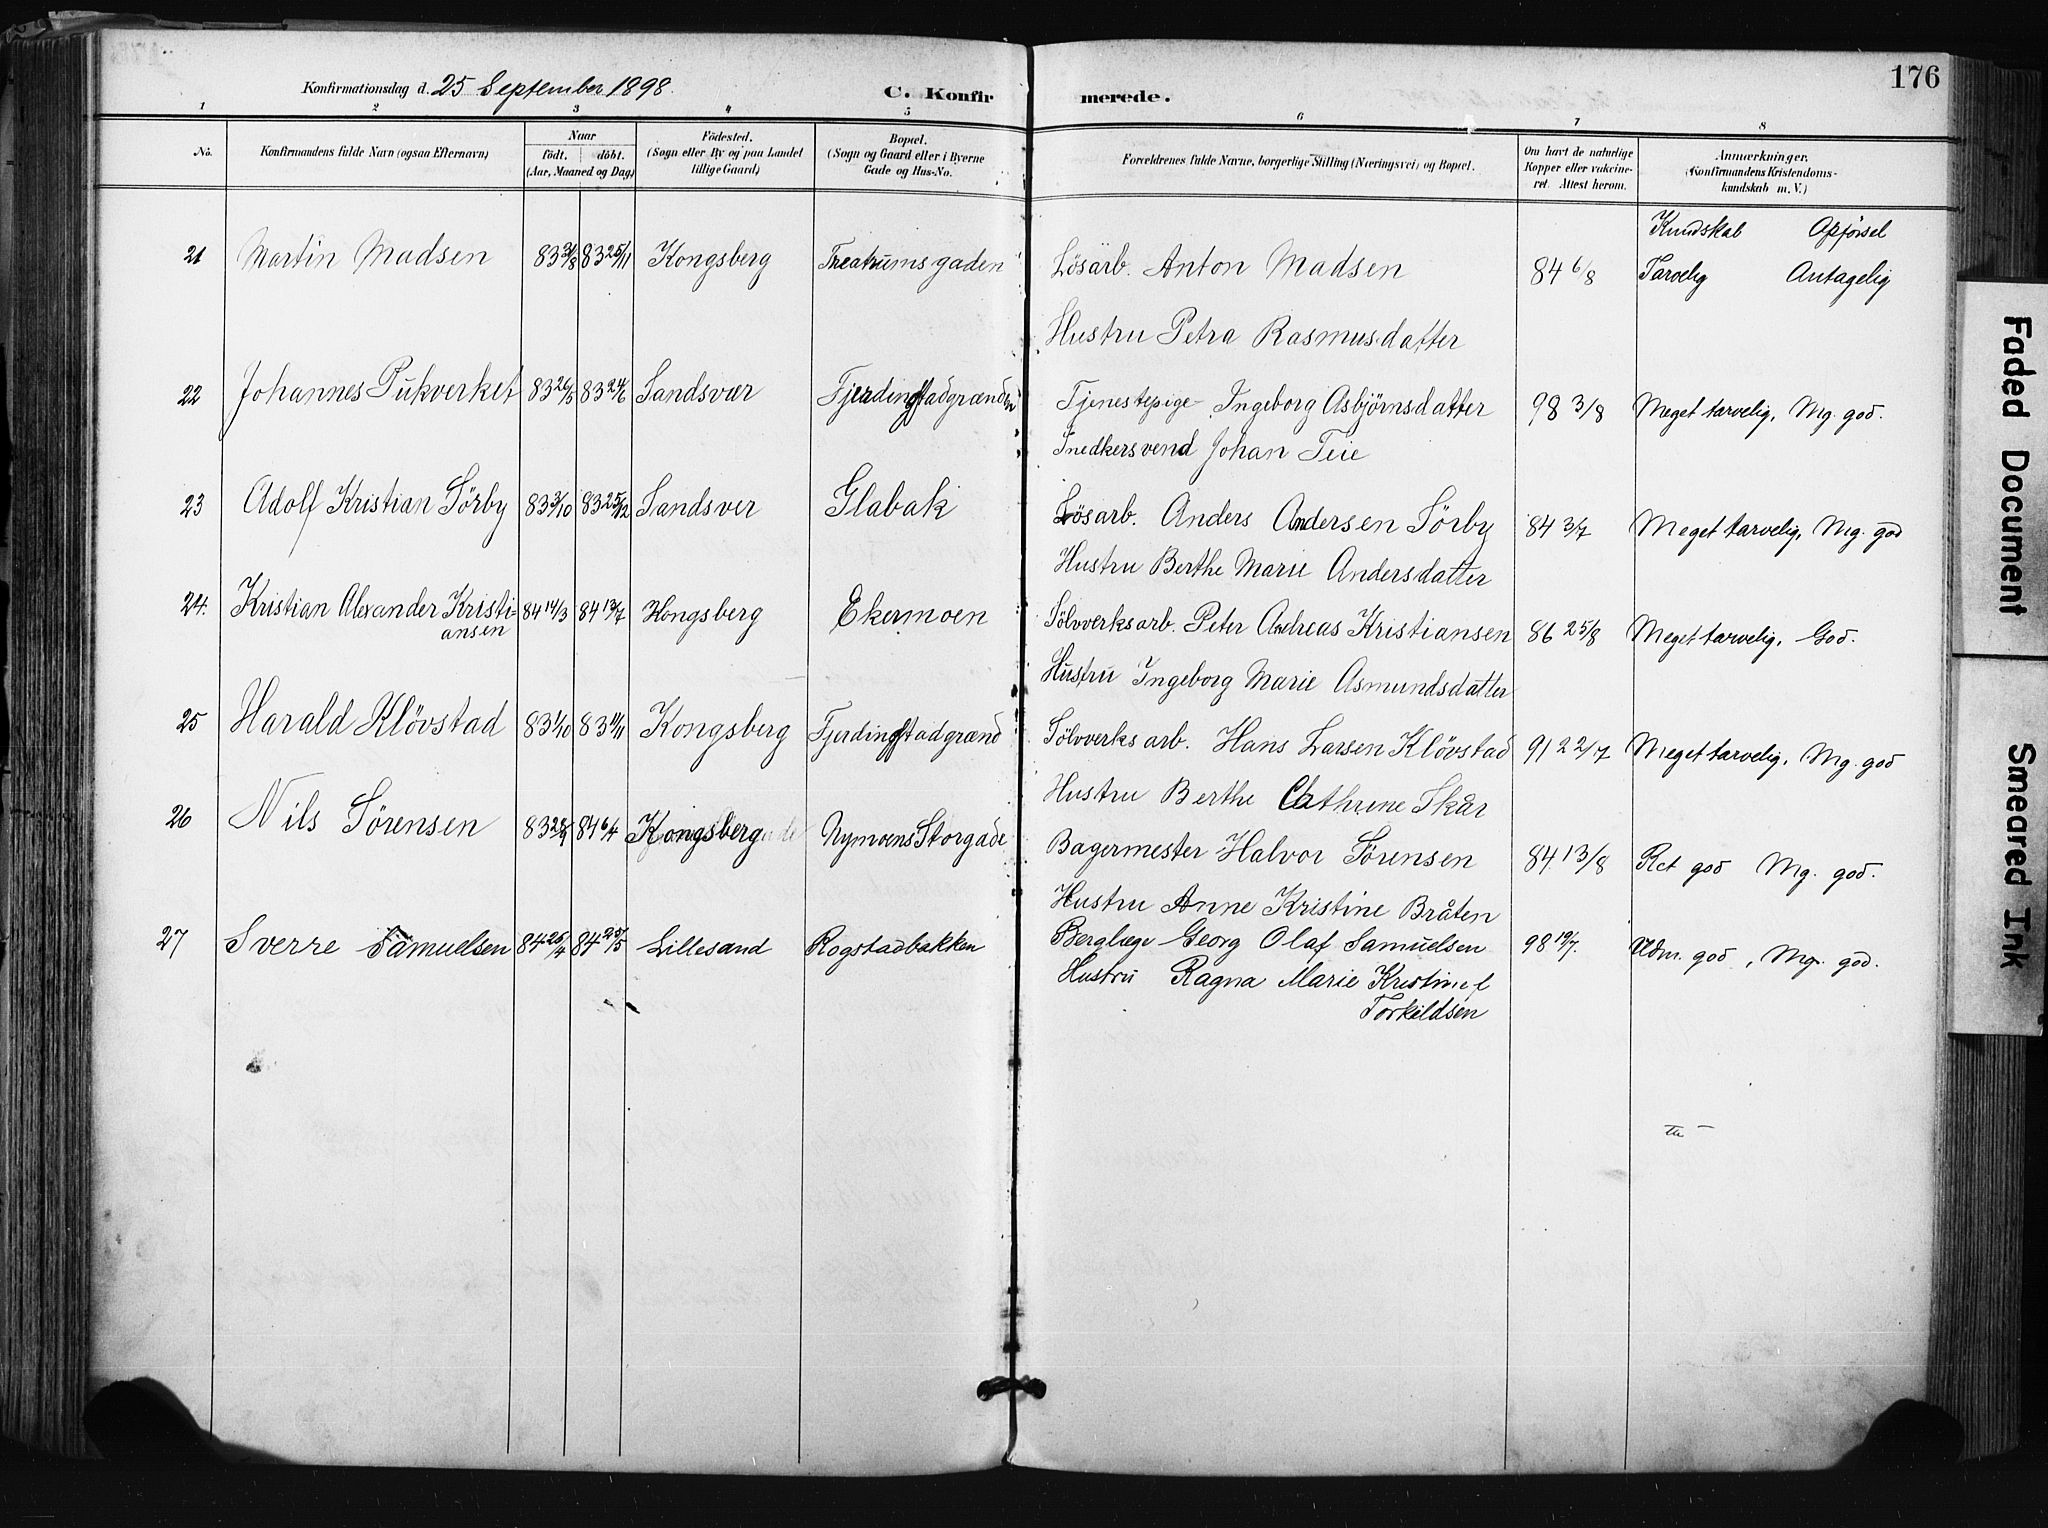 176
Konfirmationsdag d. 25 September 1898.
C. Konfirmerede.
1 2 3 4 5 6 7 8
No. Konfirmandens fulde Navn (ogsaa Efternavn) Naar födt. döbt. (Aar, Maaned og Dag) Födested. (Sogn eller By og paa Landet tillige Gaard) Bopæl. (Sogn og Gaard eller i Byerne Gade og Hus-No. Forældrenes fulde Navne, borgerlige Stilling (Næringsvei) og Bopæl. Om havt de naturlige Kopper eller vakcineret. Attest herom. Anmærkninger. (Konfirmandens Kristendomskundskab m. V.)
Kundskab Opførsel
21 Martin Madsen 83 31/8 83 25/11 Kongsberg Treatrumsgaden Lösarb. Anton Madsen 84 6/8 Tarvelig Antagelig
Hustru Petra Rasmusdatter
22 Johannes Pukverket 83 26/5 83 24/6 Sandsvær Fjerdingstadgrænden Tjenestepige Ingeborg Asbjörnsdatter 98 3/8 Meget tarvelig, Mg. god.
Snedkersvend Johan Teie
23 Adolf Kristian Sörby 83 3/10 83 25/12 Sandsver Glabak Lösarb. Anders Andersen Sörby 84 3/7 Meget tarvelig, Mg. god
Hustru Berthe Marie Andersdatter
24. Kristian Alexander Kristi- 84 14/3 84 13/7 Kongsberg Ekermoen Sölvverksarb. Peter Andreas Kristiansen 86 25/8 Meget tarvelig, God.
ansen
Hustru Ingeborg Marie Asmundsdatter
25 Harald Klövstad 83 1/10 83 11/11 Kongsberg Fjerdingstadgrænd Sölvverksarb. Hans Larsen Klövstad 91 22/7 Meget tarvelig, Mg. god
Hustru Berthe Cathrine Skår
26 Nils Sörensen 83 84 6/4 Kongsberg Nymoens Storgade Bagermester Halvor Sörensen 84 13/8 Ret god Mg. god.
Hustru Anne Kristine Bråten
27 Sverre Samuelsen 84 26/4 84 /5 Lillesand Rogstadbakken Berglæge Georg Olaf Samuelsen 98 19/7. Udm. god, Mg. god.
Hustru Ragna Marie Kristine f
Torkildsen
Faded Document
Smeared Ink